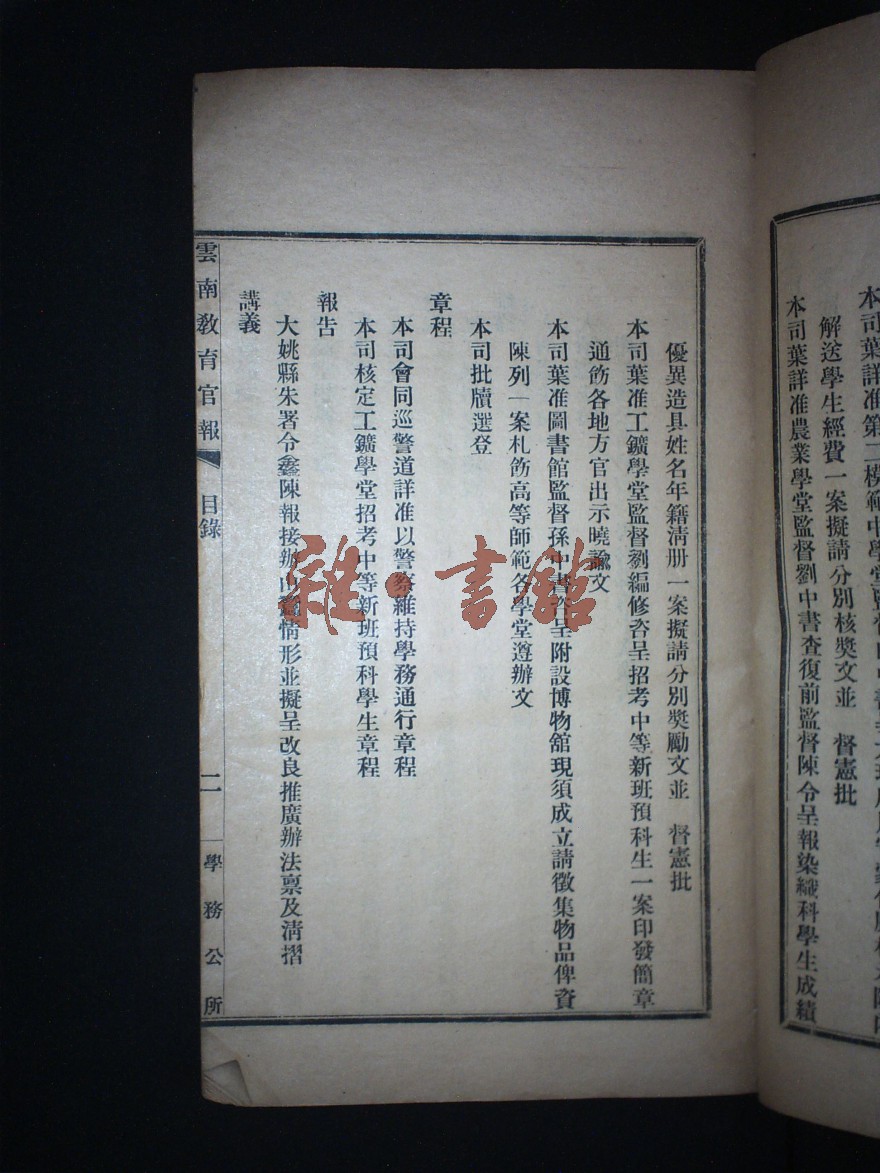 解送學生經費一案擬請分別核獎文並　督憲批
本司葉詳准農業學堂監督劉中書查復前監督陳令呈報染織科學生成績
優異造具姓名年籍清册一案擬請分別獎勵文並　督憲批
本司葉准工鑛學堂監督劉編修咨呈招考中等新班預科生一案印發簡章
通飭各地方官出示曉諭文
本司葉准圖書館監督孫中書咨呈附設博物舘現須成立請徵集物品俾資
陳列一案札飭高等師範各學堂遵辦文
本司批牘選登
章程
本司會同巡警道詳准以警察維持學務通行章程
本司核定工鑛學堂招考中等新班預科學生章程
報告
大姚縣朱署令鑫陳報接辦情形並擬呈改良推廣辦法禀及清摺
講義
雲南教育官報　目錄　二　學務公所
雜·書館